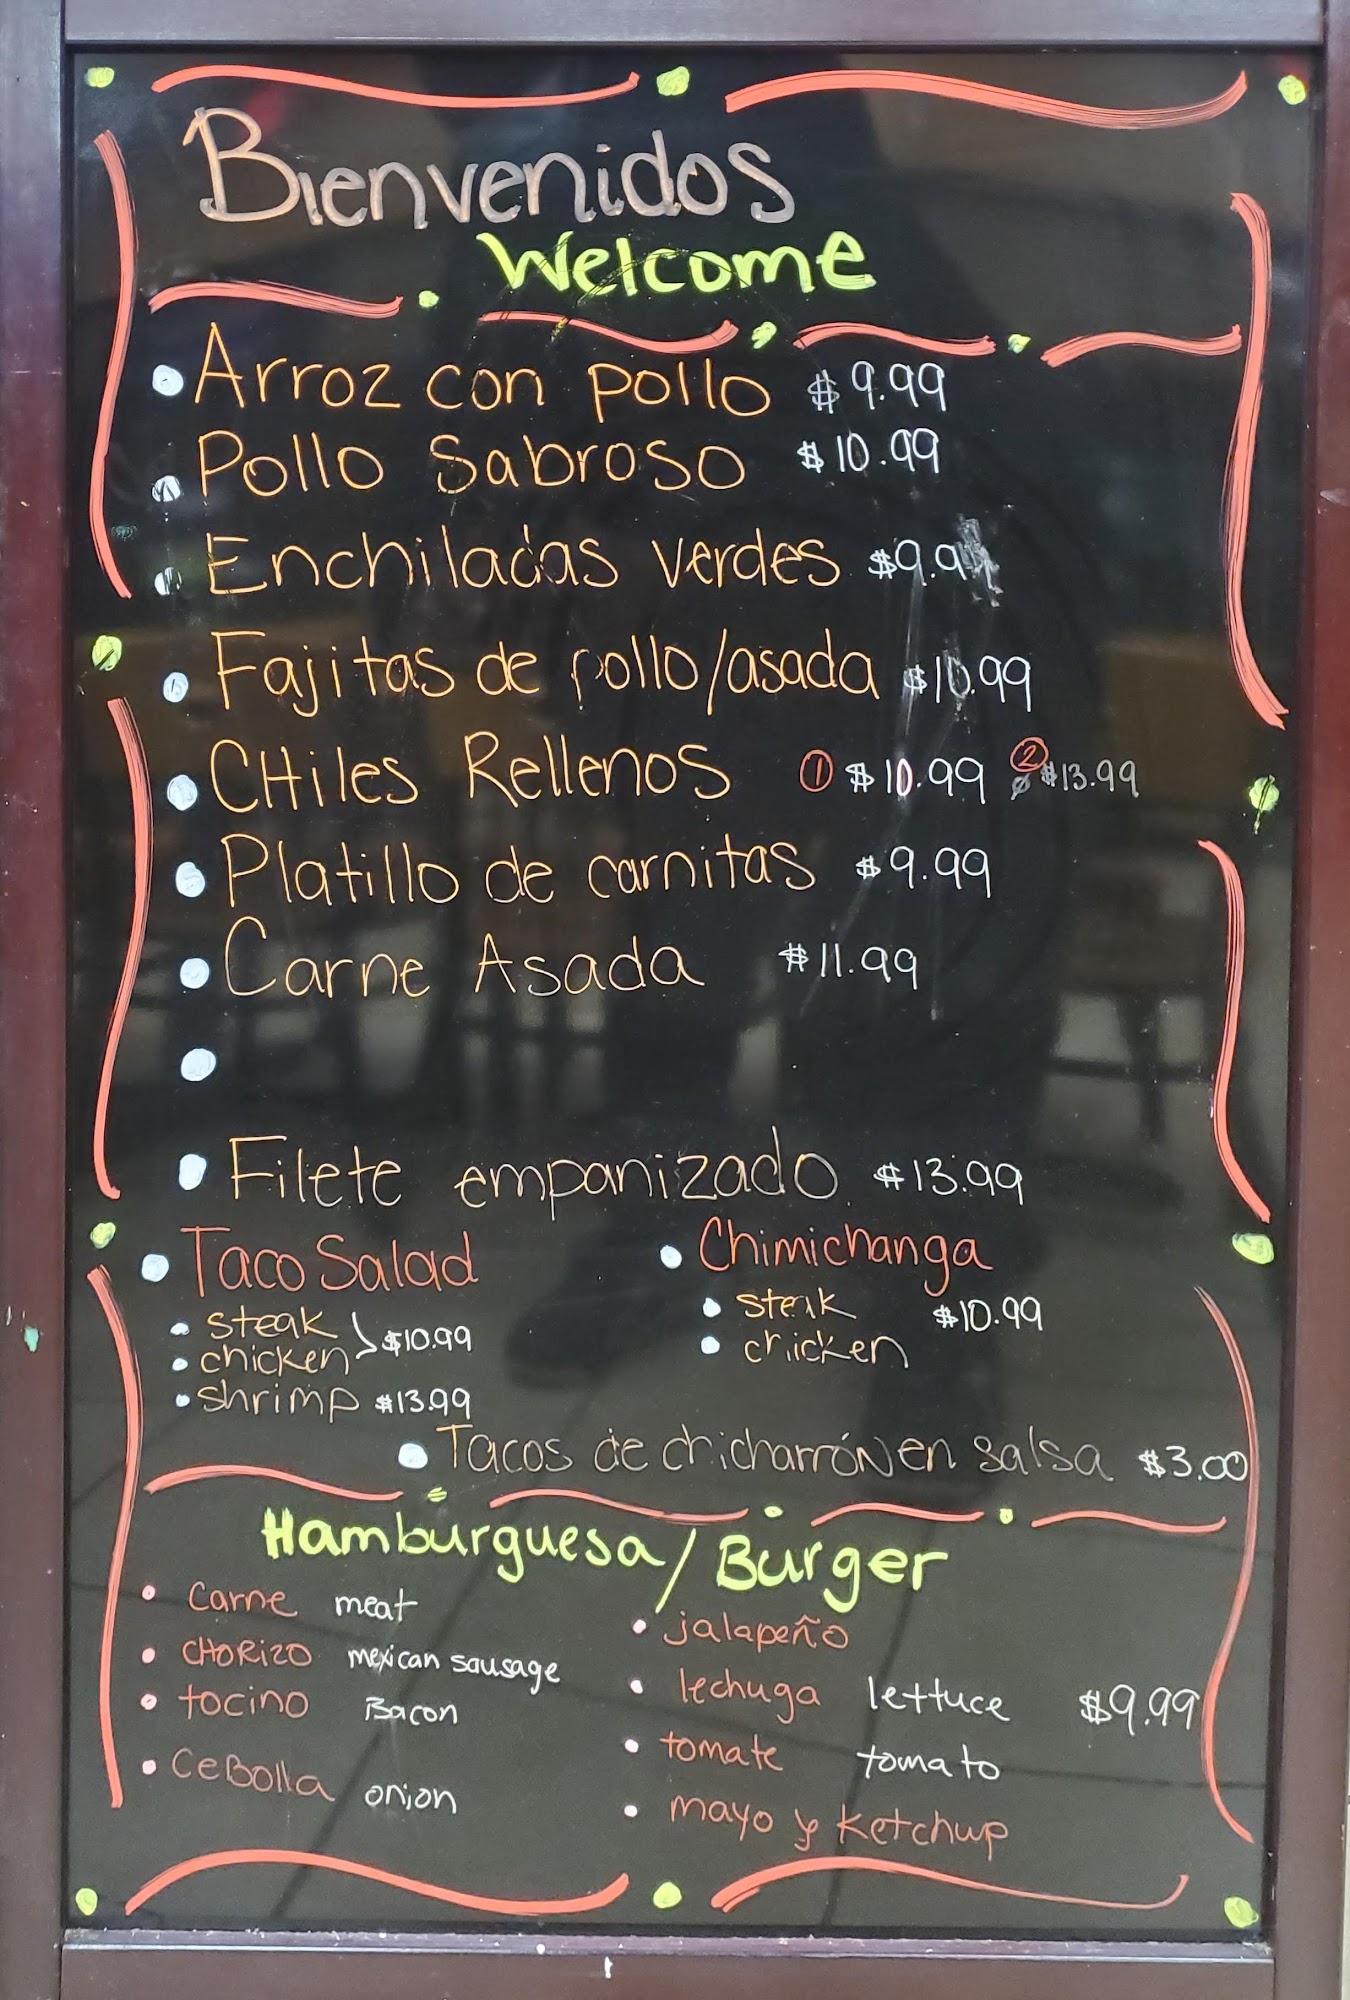 Bienvenidos
Welcome
Arroz con pollo $9.99
Pollo Sabroso $10.99
Enchiladas verdes $9.99
Fajitas de pollo/asada $10.99
CHiles Rellenos ① $10.99 ② $13.99
Platillo de carnitas $9.99
Carne Asada $11.99
Filete empanizado $13.99
Taco Salad
steak
chicken $10.99
shrimp $13.99
Chimichanga
steak $10.99
chicken
Tacos de chicharrón en salsa $3.00
Hamburguesa/Burger
carne meat
CHORIZO mexican sausage
tocino Bacon
CeBolla onion
jalapeño
lechuga lettuce $9.99
tomate tomato
mayo y ketchup